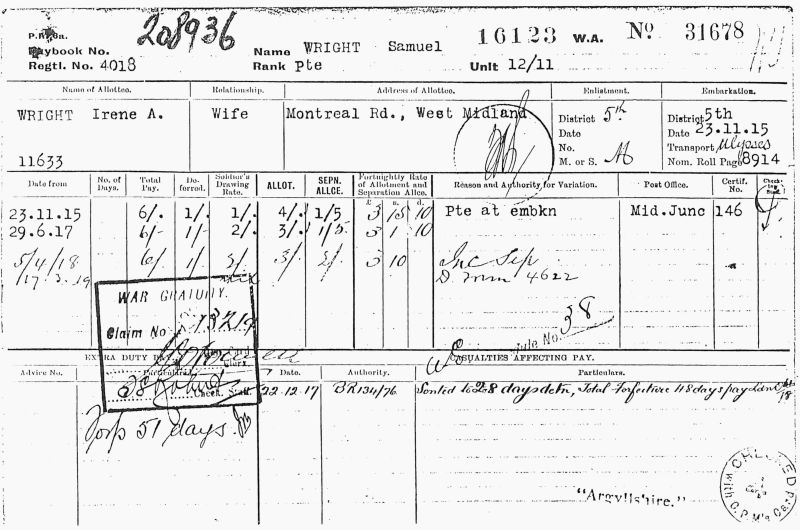 208936
Paybook No.
Regtl. No. 4018
Name WRIGHT Samuel
Rank Pte
16123 W.A. No 31678
Unit 12/11
Name of Allottee. Relationship. Address of Allottee. Enlistment. Embarkation.
WRIGHT Irene A. Wife Montreal Rd., West Midland
11633
District 5th
Date
No.
M. or S. M
District 5th
Date 23.11.15
Transport Ulysses
Nom. Roll Page 8914
Date from No. of Days. Total Pay. De-ferred. Soldier's Drawing Rate. ALLOT. SEPN. ALLCE. Fortnightly Rate of Allotment and Separation Allce. £ s. d. Reason and Authority for Variation. Post Office. Certif. No.
23.11.15 6/. 1/. 1/. 4/. 1/5 3 15 10 Pte at embkn Mid.Junc 146
29.6.17 6/- 1/- 2/. 3/. 1/5 3 1 10
5/4/18 6/ 1/ 2/ 3/ 2/ 3 10 Inc Sep
17.2.19 4622
WAR GRATUITY.
Claim No 13219
38
EXTRA DUTY PAY CASUALTIES AFFECTING PAY.
Advice No. Particulars. Date. Authority. Particulars.
Check. Staff.
22.12.17 BR134/76 Sented to 28 days detn, Total forfeiture 48 days pay
Forf 51 days
"Argyllshire."
CHECKED with O.P.M's Card